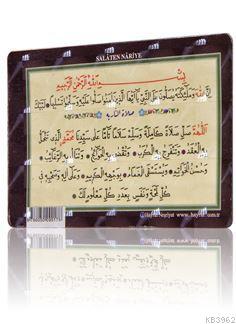 SALÂTEN NÂRİYE
بِسْمِ اللّٰهِ الرَّحْمٰنِ الرَّحِيمِ
اِنَّ اللّٰهَ وَمَلٰئِكَتَهُ يُصَلُّونَ عَلَى النَّبِيِّ يَا اَيُّهَا الَّذِينَ اٰمَنُوا صَلُّوا عَلَيْهِ وَسَلِّمُوا تَسْلِيمًا لَبَّيْكَ
صلاة النارية
اَللّٰهُمَّ صَلِّ صَلَاةً كَامِلَةً وَسَلِّمْ سَلَامًا تَامًّا عَلَى سَيِّدِنَا مُحَمَّدٍ الَّذِي تَنْحَلُّ
بِهِ الْعُقَدُ وَتَنْفَرِجُ بِهِ الْكُرَبُ وَتُقْضَى بِهِ الْحَوَائِجُ وَتُنَالُ بِهِ الرَّغَائِبُ
وَحُسْنُ الْخَوَاتِمِ وَيُسْتَسْقَى الْغَمَامُ بِوَجْهِهِ الْكَرِيمِ وَعَلَى اٰلِهِ وَصَحْبِهِ فِي
كُلِّ لَمْحَةٍ وَنَفَسٍ بِعَدَدِ كُلِّ مَعْلُومٍ لَكَ
www.hayrat.com.tr
KB3962